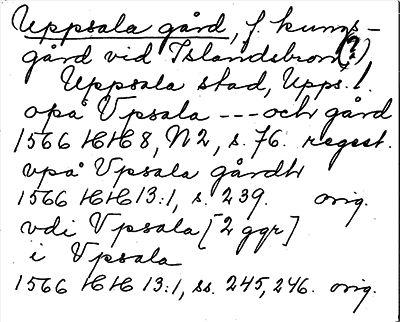 Uppsala gård, f. kungs-
gård vid Islandsbron(?)
Uppsala stad, Upps. l.
opå Vpsala --- och gård
1566 HH 8, N2, s. 76. regest.
vpå Vpsala gårdh
1566 HH 13:1, s. 239. orig.
vdi Vpsala [2 ggr]
i Vpsala
1566 HH 13:1, ss. 245, 246. orig.